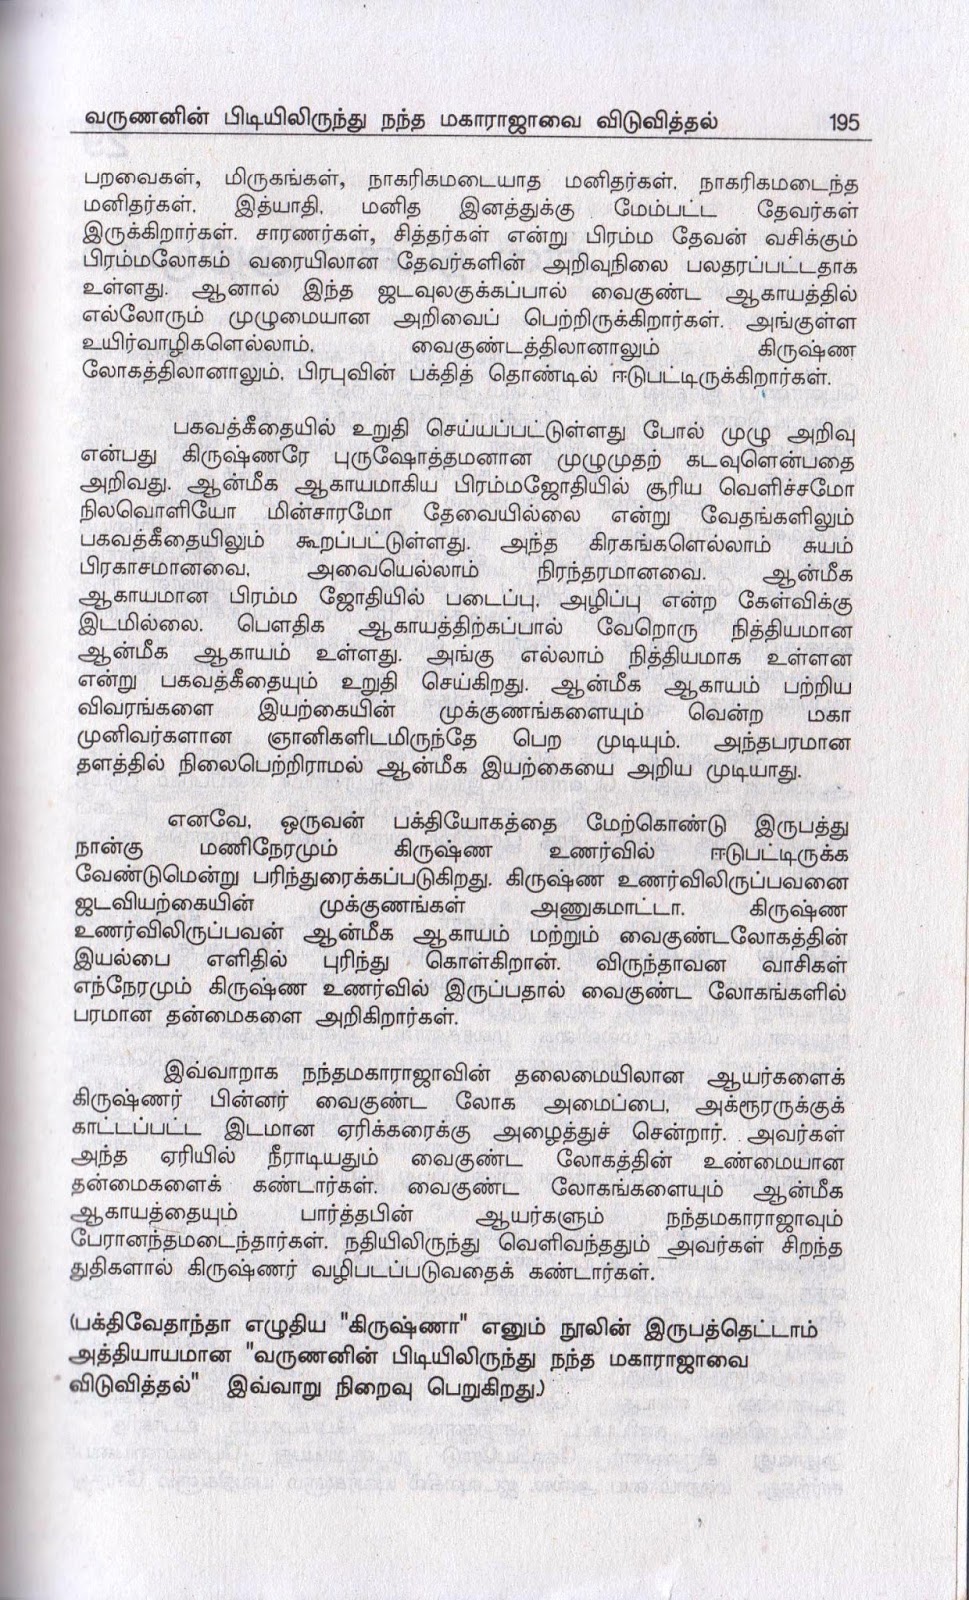 வருணனின் பிடியிலிருந்து நந்த மகாராஜாவை விடுவித்தல் 195
பறவைகள், மிருகங்கள், நாகரிகமடையாத மனிதர்கள், நாகரிகமடைந்த
மனிதர்கள், இத்யாதி, மனித இனத்துக்கு மேம்பட்ட தேவர்கள்
இருக்கிறார்கள். சாரணர்கள், சித்தர்கள் என்று பிரம்ம தேவன் வசிக்கும்
பிரம்மலோகம் வரையிலான தேவர்களின் அறிவுநிலை பலதரப்பட்டதாக
உள்ளது. ஆனால் இந்த ஜடவுலகுக்கப்பால் வைகுண்ட ஆகாயத்தில்
எல்லோரும் முழுமையான அறிவைப் பெற்றிருக்கிறார்கள். அங்குள்ள
உயிர்வாழிகளெல்லாம், வைகுண்டத்திலானாலும் கிருஷ்ண
லோகத்திலானாலும், பிரபுவின் பக்தித் தொண்டில் ஈடுபட்டிருக்கிறார்கள்.
பகவத்கீதையில் உறுதி செய்யப்பட்டுள்ளது போல் முழு அறிவு
என்பது கிருஷ்ணரே புருஷோத்தமனான முழுமுதற் கடவுளென்பதை
அறிவது. ஆன்மீக ஆகாயமாகிய பிரம்மஜோதியில் சூரிய வெளிச்சமோ
நிலவொளியோ மின்சாரமோ தேவையில்லை என்று வேதங்களிலும்
பகவத்கீதையிலும் கூறப்பட்டுள்ளது. அந்த கிரகங்களெல்லாம் சுயம்
பிரகாசமானவை, அவையெல்லாம் நிரந்தரமானவை. ஆன்மீக
ஆகாயமான பிரம்ம ஜோதியில் படைப்பு, அழிப்பு என்ற கேள்விக்கு
இடமில்லை. பௌதிக ஆகாயத்திற்கப்பால் வேறொரு நித்தியமான
ஆன்மீக ஆகாயம் உள்ளது. அங்கு எல்லாம் நித்தியமாக உள்ளன
என்று பகவத்கீதையும் உறுதி செய்கிறது. ஆன்மீக ஆகாயம் பற்றிய
விவரங்களை இயற்கையின் முக்குணங்களையும் வென்ற மகா
முனிவர்களான ஞானிகளிடமிருந்தே பெற முடியும். அந்தபரமான
தளத்தில் நிலைபெற்றிராமல் ஆன்மீக இயற்கையை அறிய முடியாது.
எனவே, ஒருவன் பக்தியோகத்தை மேற்கொண்டு இருபத்து
நான்கு மணிநேரமும் கிருஷ்ண உணர்வில் ஈடுபட்டிருக்க
வேண்டுமென்று பரிந்துரைக்கப்படுகிறது. கிருஷ்ண உணர்விலிருப்பவனை
ஜடவியற்கையின் முக்குணங்கள் அணுகமாட்டா. கிருஷ்ண
உணர்விலிருப்பவன் ஆன்மீக ஆகாயம் மற்றும் வைகுண்டலோகத்தின்
இயல்பை எளிதில் புரிந்து கொள்கிறான். விருந்தாவன வாசிகள்
எந்நேரமும் கிருஷ்ண உணர்வில் இருப்பதால் வைகுண்ட லோகங்களில்
பரமான தன்மைகளை அறிகிறார்கள்.
இவ்வாறாக நந்தமகாராஜாவின் தலைமையிலான ஆயர்களைக்
கிருஷ்ணர் பின்னர் வைகுண்ட லோக அமைப்பை, அக்ரூரருக்குக்
காட்டப்பட்ட இடமான ஏரிக்கரைக்கு அழைத்துச் சென்றார். அவர்கள்
அந்த ஏரியில் நீராடியதும் வைகுண்ட லோகத்தின் உண்மையான
தன்மைகளைக் கண்டார்கள். வைகுண்ட லோகங்களையும் ஆன்மீக
ஆகாயத்தையும் பார்த்தபின் ஆயர்களும் நந்தமகாராஜாவும்
பேரானந்தமடைந்தார்கள். நதியிலிருந்து வெளிவந்ததும் அவர்கள் சிறந்த
துதிகளால் கிருஷ்ணர் வழிபடப்படுவதைக் கண்டார்கள்.
(பக்திவேதாந்தா எழுதிய "கிருஷ்ணா" எனும் நூலின் இருபத்தெட்டாம்
அத்தியாயமான "வருணனின் பிடியிலிருந்து நந்த மகாராஜாவை
விடுவித்தல்" இவ்வாறு நிறைவு பெறுகிறது.)